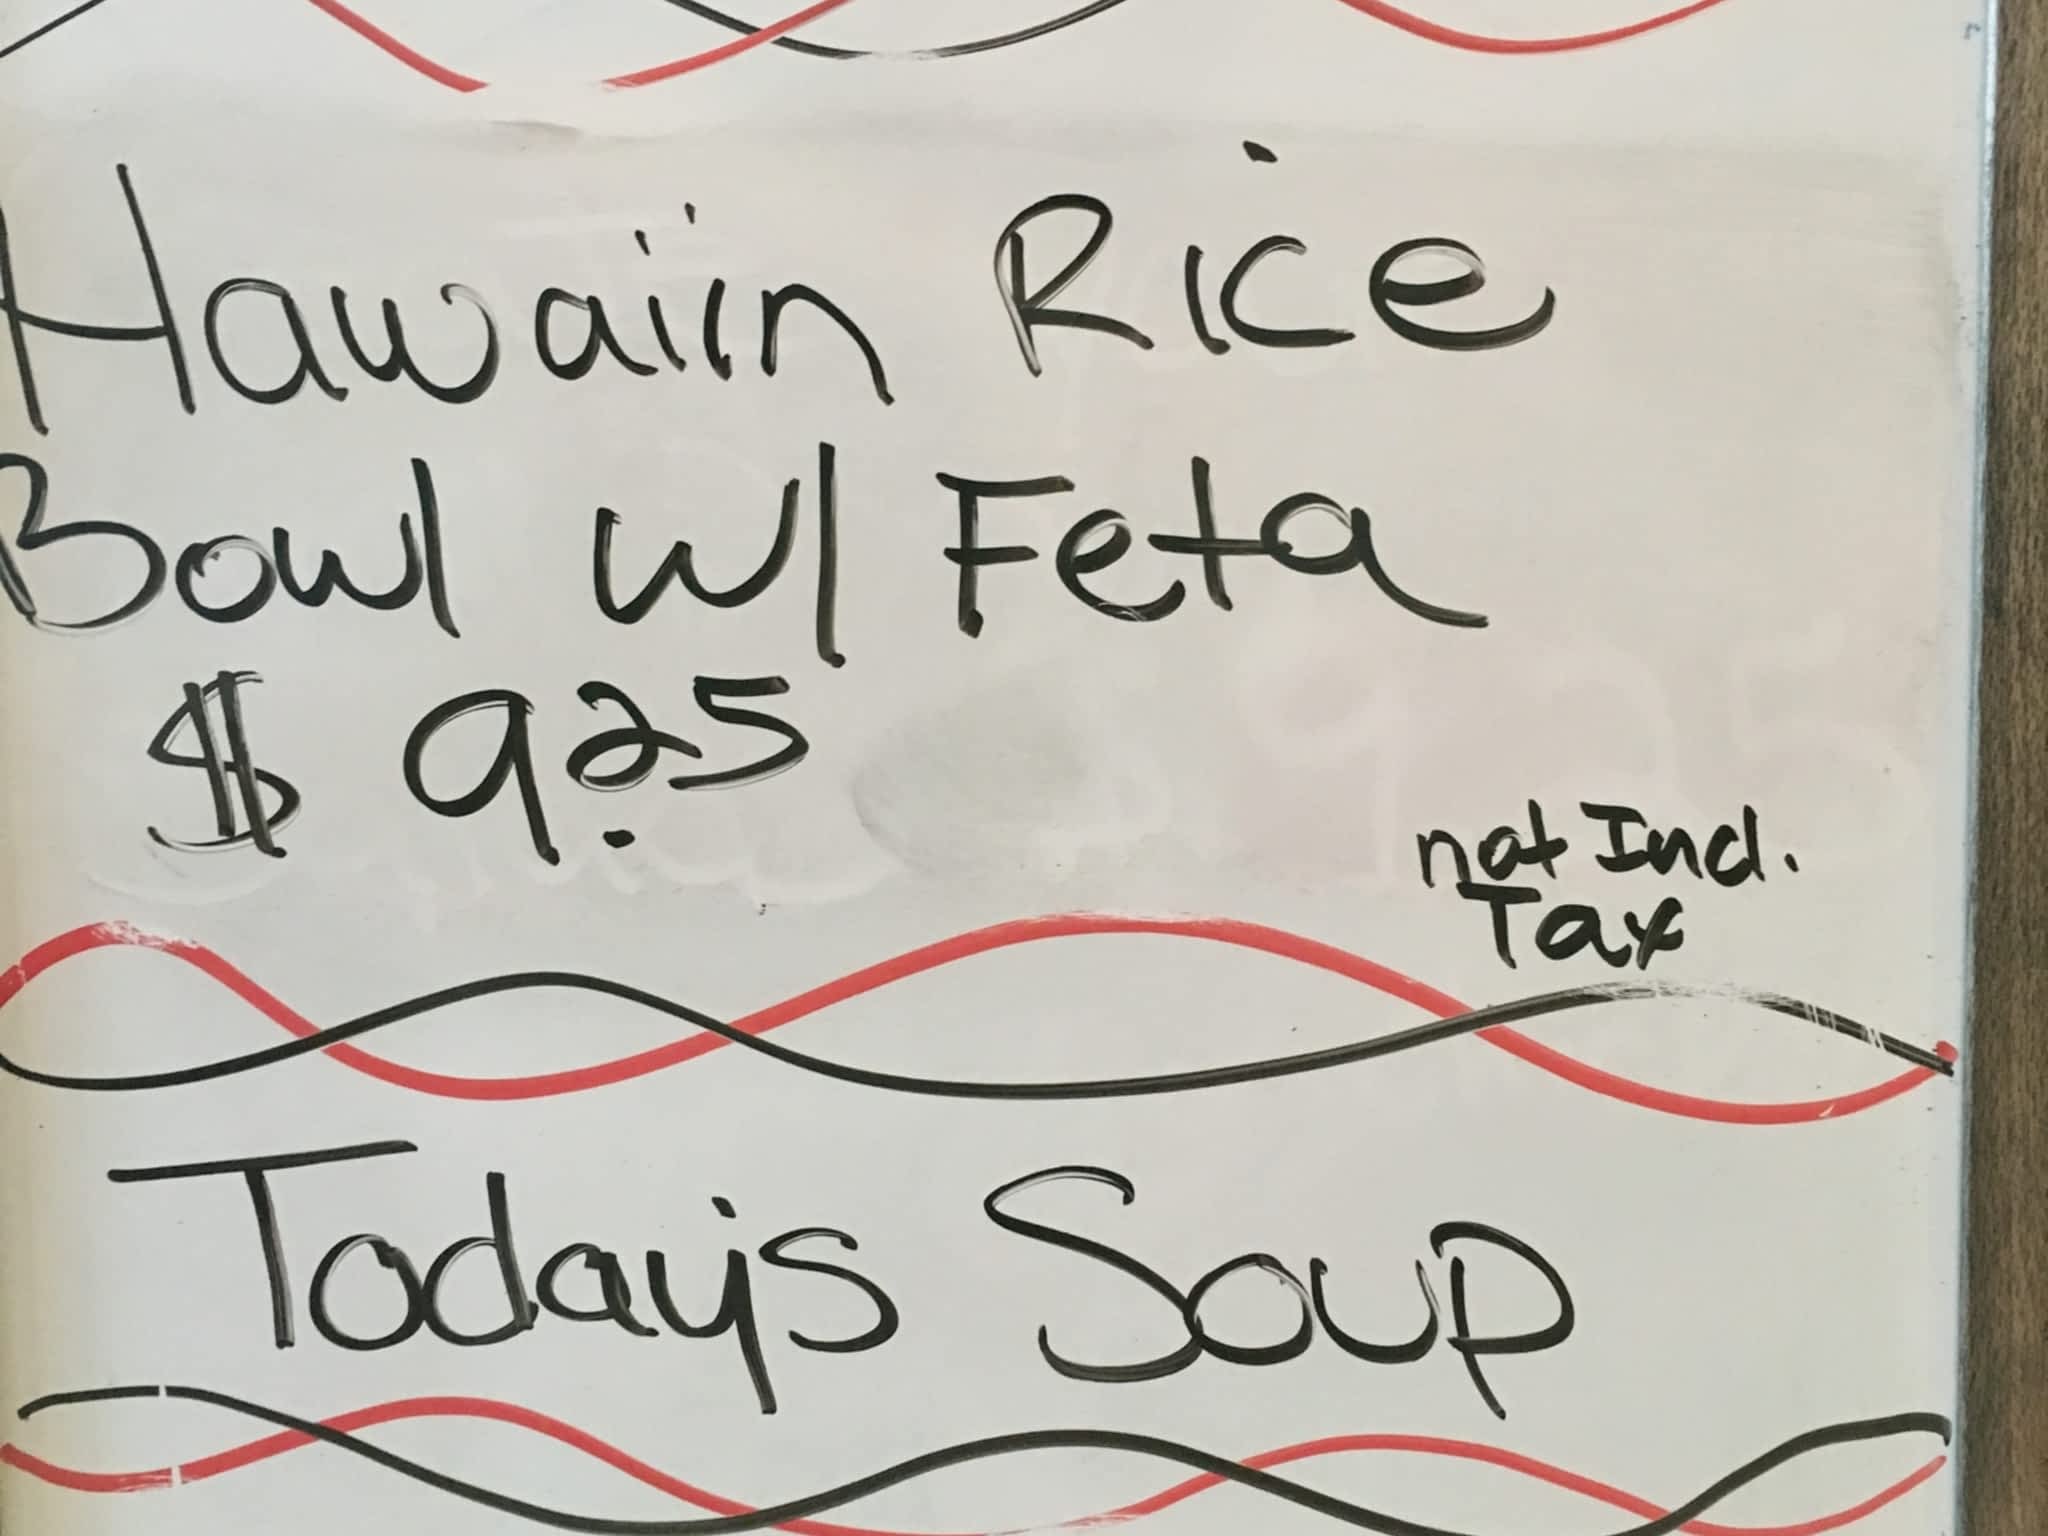 Hawaiin Rice
Bowl w/ Feta
$ 9.25
not Incl.
Tax
Today's Soup